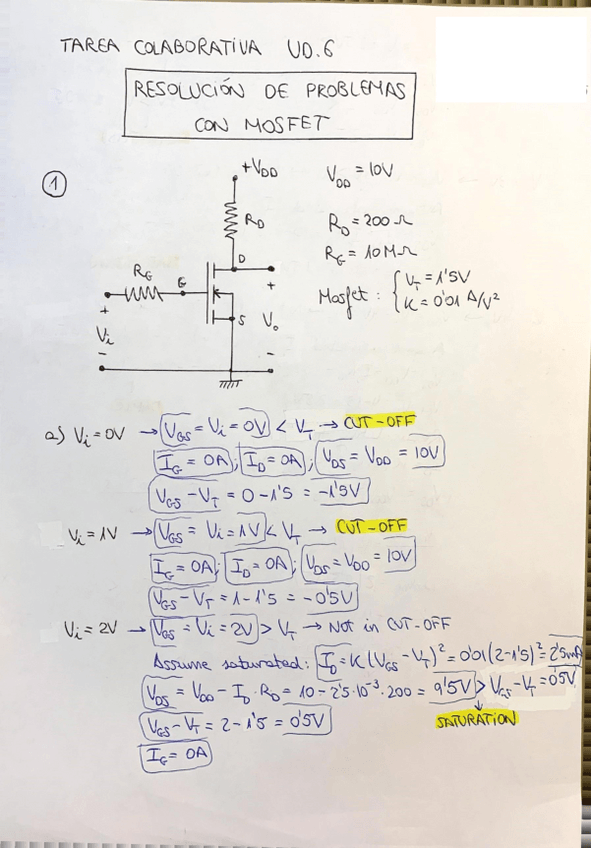 TAREA COLABORATIVA UD.6
RESOLUCIÓN DE PROBLEMAS
CON MOSFET
1
+V_DD
R_D
D
R_G
G
S
+
V_i
-
+
V_o
-
V_DD = 10V
R_D = 200 Ω
R_G = 10 MΩ
Mosfet : { V_T = 1'5V
K = 0'01 A/V²
a) V_i = 0V → V_GS = V_i = 0V < V_T → CUT-OFF
I_G = 0A; I_D = 0A; V_DS = V_DD = 10V
V_GS - V_T = 0 - 1'5 = -1'5V
V_i = 1V → V_GS = V_i = 1V < V_T → CUT-OFF
I_G = 0A; I_D = 0A; V_DS = V_DD = 10V
V_GS - V_T = 1 - 1'5 = -0'5V
V_i = 2V → V_GS = V_i = 2V > V_T → Not in CUT-OFF
Assume saturated: I_D = K(V_GS - V_T)² = 0'01(2-1'5)² = 2'5mA
V_DS = V_DD - I_D · R_D = 10 - 2'5·10⁻³·200 = 9'5V > V_GS - V_T = 0'5V
V_GS - V_T = 2 - 1'5 = 0'5V
SATURATION
I_G = 0A